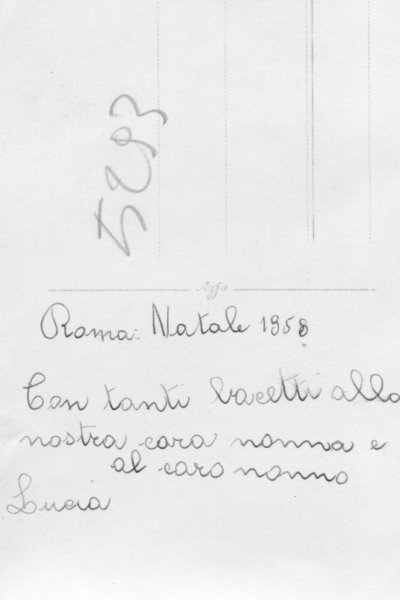 Roma: Natale 1958
Con tanti bacetti alla
nostra cara nonna e
al caro nonno
Lucia